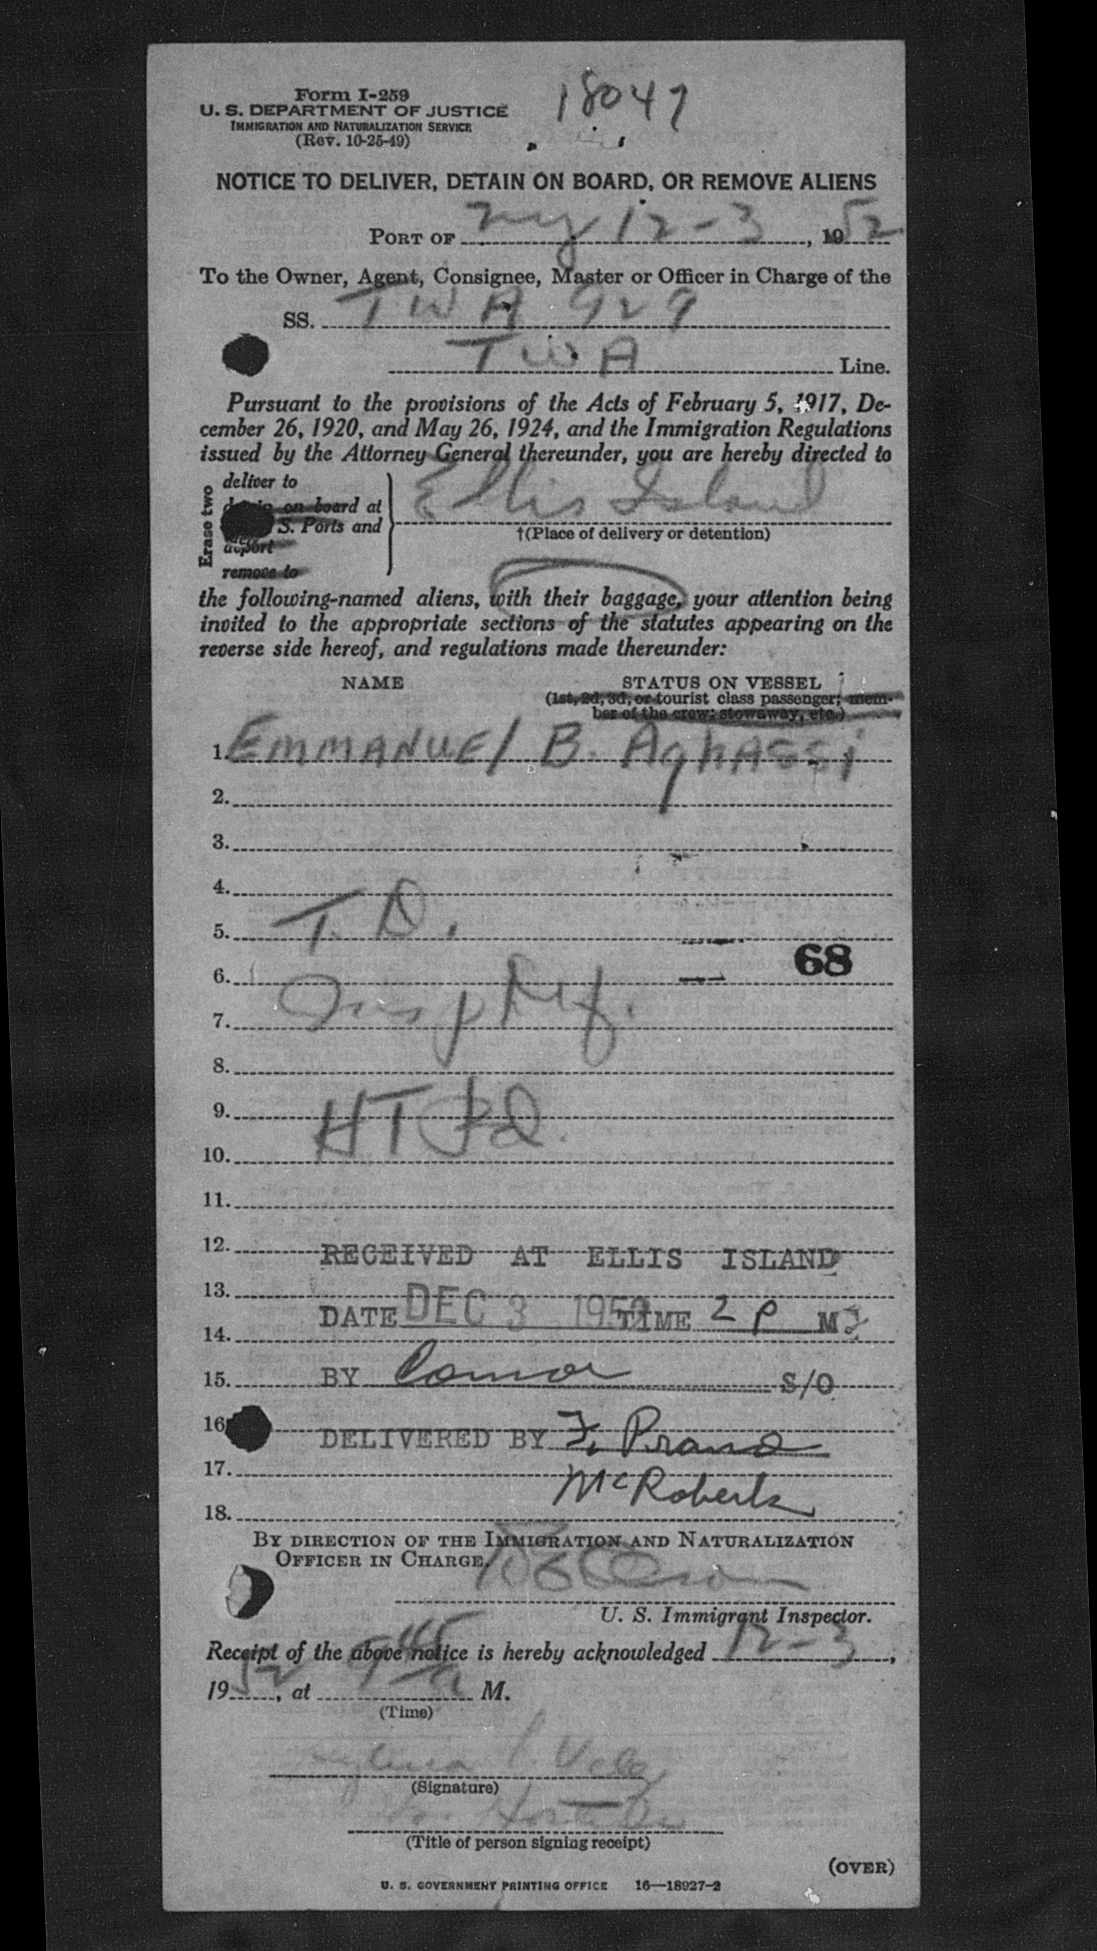 Form I-259
18047
U. S. DEPARTMENT OF JUSTICE
IMMIGRATION AND NATURALIZATION SERVICE
(Rev. 10-25-49)
NOTICE TO DELIVER, DETAIN ON BOARD, OR REMOVE ALIENS
PORT OF NY 12-3, 1952
To the Owner, Agent, Consignee, Master or Officer in Charge of the
SS. TWA 929
TWA Line.
Pursuant to the provisions of the Acts of February 5, 1917, De-
cember 26, 1920, and May 26, 1924, and the Immigration Regulations
issued by the Attorney General thereunder, you are hereby directed to
Erase two
deliver to
detain on board at
S. Ports and
deport
remove to
Ellis Island
†(Place of delivery or detention)
the following-named aliens, with their baggage, your attention being
invited to the appropriate sections of the statutes appearing on the
reverse side hereof, and regulations made thereunder:
NAME STATUS ON VESSEL
(1st, 2d, 3d, or tourist class passenger; mem-
ber of the crew; stowaway, etc.)
1. EMMANUEl B. AghASSi
2.
3.
4.
5. T. D.
6. 68
7.
8.
9.
10.
11.
12. RECEIVED AT ELLIS ISLAND
13.
DATE DEC 3 1952 TIME 2 P M
14.
15. BY Connor S/O
16
DELIVERED BY F.
17. McRoberts
18.
BY DIRECTION OF THE IMMIGRATION AND NATURALIZATION
OFFICER IN CHARGE.
U. S. Immigrant Inspector.
Receipt of the above notice is hereby acknowledged 12-3,
1952, at 9 45 a M.
(Time)
(Signature)
(Title of person signing receipt)
(OVER)
U. S. GOVERNMENT PRINTING OFFICE 16—18927-2